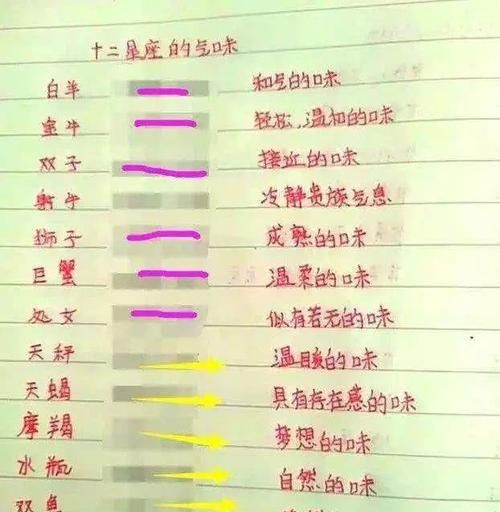 十二星座的气味
白羊 和气的味
金牛 轻松,温和的味
双子 接近的味
射手 冷静贵族气息
狮子 成熟的味
巨蟹 温柔的味
处女 似有若无的味
天秤 温暖的味
天蝎 具有存在感的味
摩羯 梦想的味
水瓶 自然的味
双鱼